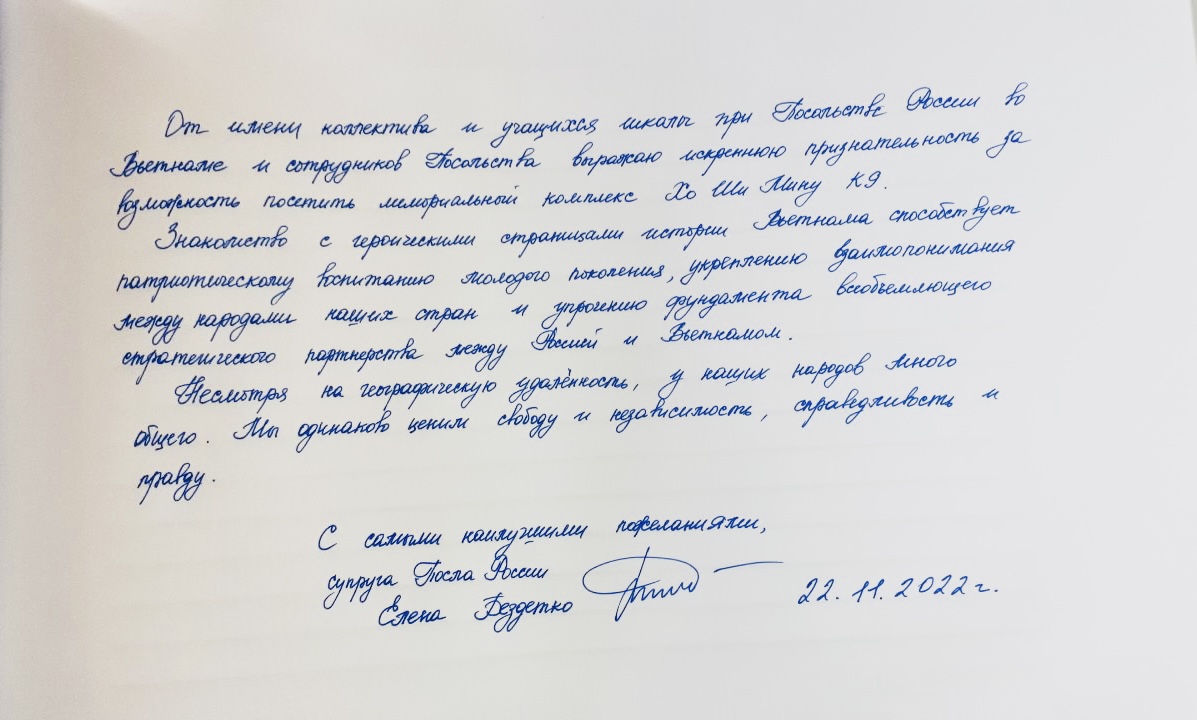 От имени коллектива и учащихся школы при Посольстве России во
Вьетнаме и сотрудников Посольства выражаю искреннюю признательность за
возможность посетить мемориальный комплекс Хо Ши Мину К9.
Знакомство с героическими страницами истории Вьетнама способствует
патриотическому воспитанию молодого поколения, укреплению взаимопонимания
между народами наших стран и упрочению фундамента всеобъемлющего
стратегического партнерства между Россией и Вьетнамом.
Несмотря на географическую удалённость, у наших народов много
общего. Мы одинаково ценим свободу и независимость, справедливость и
правду.
С самыми наилучшими пожеланиями,
супруга Посла России
Елена Бездетко 22.11.2022 г.